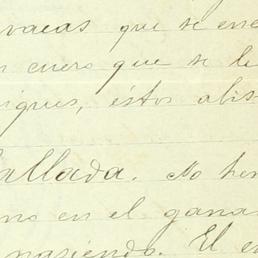 vacas que se en
cuero que se le
éstos abis
allada. No hem
no en el gana
naciendo. El e